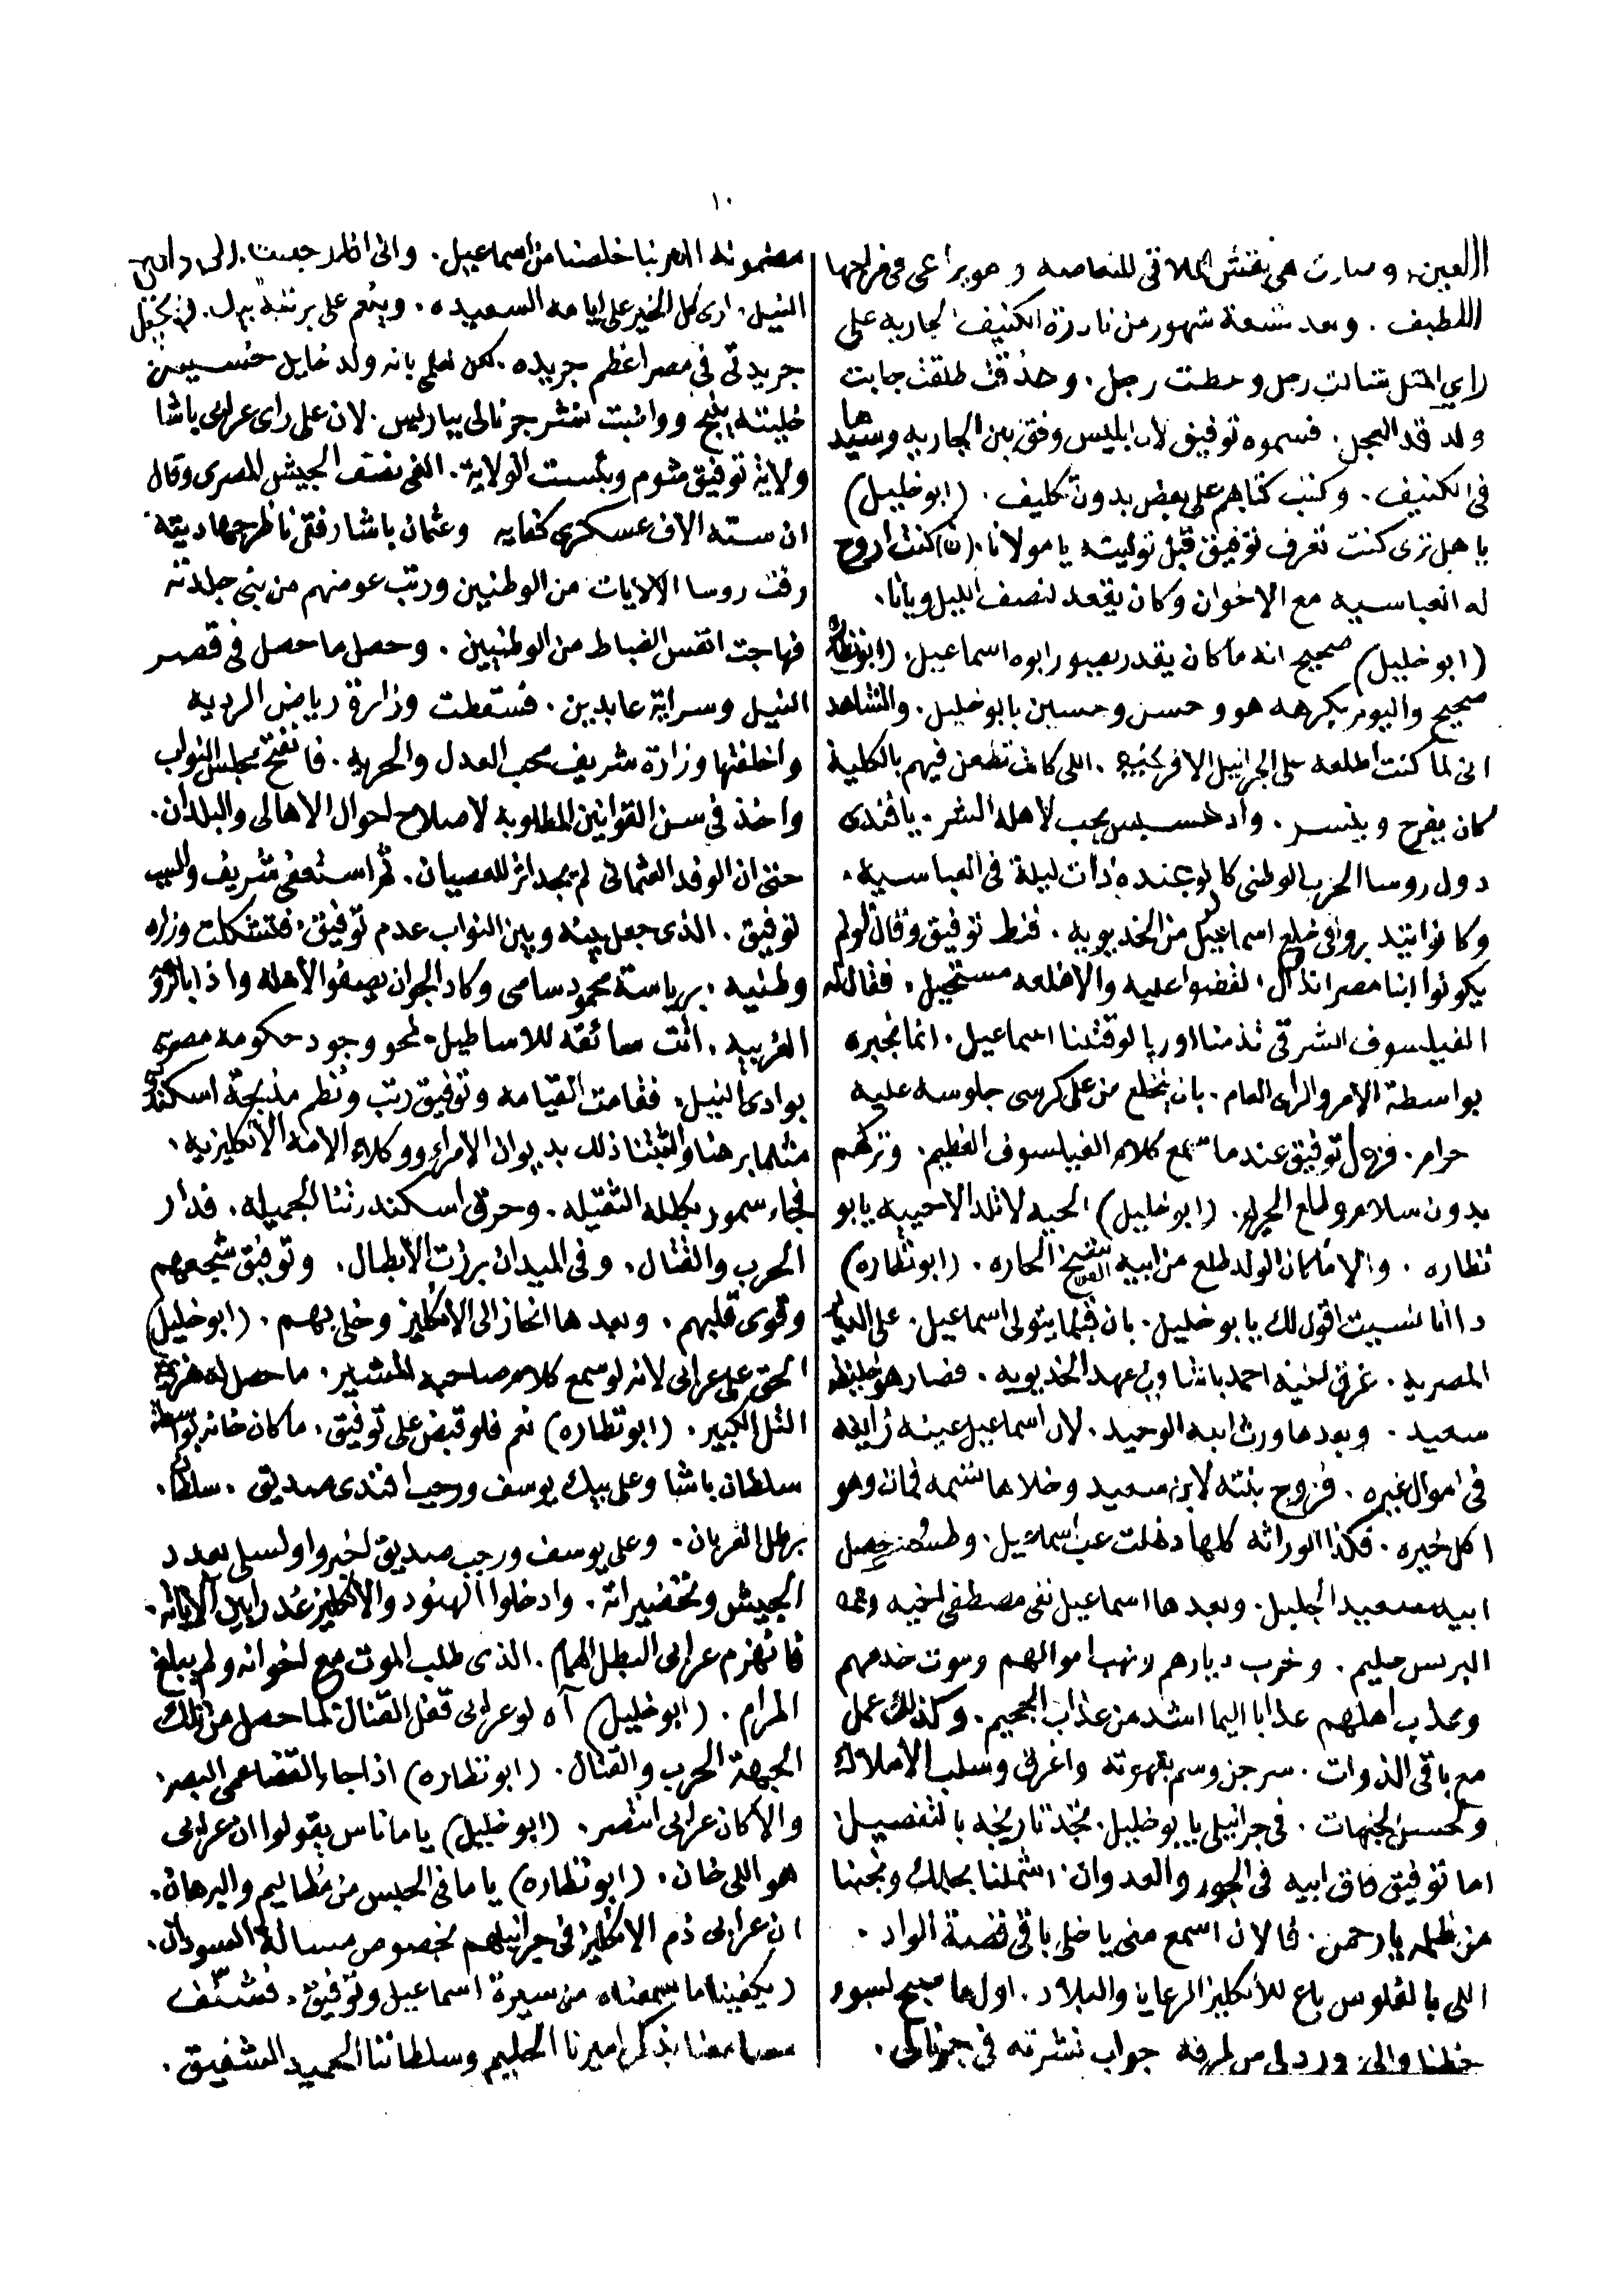 ١٠
العين. وصارت هي تفتش الملاقي للنعاصه وهو يراعي في فراجها
اللطيف. وبعد تسعة شهور من نادرة الكنيف الجاريه على
راي المثل شالت رجل وحطت رجل. وحذقت طلقت جابت
ولد قد العجل. فسموه توفيق لان ابليس وفق بين الجاريه وسيدها
في الكنيف. وكتب كتابهم على بعض بدون تكليف. (ابو خليل)
يا هل ترى كنت تعرف توفيق قبل توليته يا مولانا. (ن) كنت اروح
له العباسيه مع الاخوان وكان يقعد لنصف الليل ويانا.
(ابو خليل) صحيح انه ما كان يقدر يصور ابوه اسماعيل. (ابو نظاره)
صحيح واليوم يكرهه هو وحسن وحسين يابو خليل. والشاهد
اني لما كنت اطلعه على الجرانيل الافرنجيه. اللي كانت تطعن فيهم بالكلية
كان يفرح وينسر. وادخسيس يحب لاهله الشر. يافندى
دول روسا الحزب الوطني كانوا عنده ذات ليلة في العباسيه.
وكانوا بيتدبروا في خلع اسماعيل من الخديويه. فنط توفيق وقال لو لم
يكونوا ابنا مصر انذال. لقضوا عليه والا خلعه مستحيل. فقال له
الفيلسوف الشرقي تذمنا اوربا لو قتلنا اسماعيل. انما نجبره
بواسطة الامر والراى العام. بان ينخلع من على كرسى جلوسه عليه
حرام. فزعل توفيق عندما سمع كلام الفيلسوف العظيم. وتركهم
بدون سلام وطلع الحريم. (ابو خليل) الحيه لا تلد الا حييه يابو
نظاره. والا ما كان الولد طلع من ابيه الحاره. (ابو نظاره)
دا انا نسيت اقول لك يابو خليل. بان قبلما يتولى اسماعيل. على الديار
المصريه. غرق لخيه احمد باشا ولي عهد الخديويه. فصار هو خليفة
سعيد. وبعدها ورث ابنه الوحيد. لان اسماعيل عينه زايغه
في اموال غيره. فزوج بنته لابن سعيد وخلاها تسمه فمات وهو
اكل خيره. فكذا الوراثه كلها دخلت عب اسماعيل.
ابيه سعيد الجليل. وبعدها اسماعيل نفى مصطفى لخيه وعمه
البرنس حليم. وخرب ديارهم ونهب اموالهم وموت خدمهم
وعذب اهلهم عذابا اليما اشد من عذاب الجحيم. وكذلك عمل
مع باقي الذوات. سرجن وسم بقهوته واغرق وسلب الاملاك
في جرانيلي يابو خليل. تجد تاريخه بالتفصيل.
اما توفيق فاق ابيه في الجور والعدوان. اشملنا بحلمك ونجنا
من ظلمه يا رحمن. فالان اسمع منى يا خلي باقي قصة الواد.
اللي بالفلوس باع للانكليز الرعايا والبلاد. اولما صبح لسوء
حظنا والى. ورد لي من طرفه جواب نشرته في جرنالى.
مضمونه الحمد ربنا خلصنا من اسماعيل. واني اذا رجعت الى وادى
النيل. ارى كل الخير على ايامه السعيده. وينعم على برتبة بيك.
جريدتى في مصر اعظم جريده. لكن لعلمى بانه ولد خاين خسيس
خليته ينبح وواثبت نشر جرنالي بباريس. لان على راى عرابي باشا
ولاية توفيق مشوم وبئست الولاية. الغى نصف الجيش المصرى وقال
ان سته الاف عسكرى كفايه وعثمان باشا رفقى ناظر جهاديته
رفت روسا الالايات من الوطنيين ورتب عوضهم من بنى جلدته
فهاجت انفس الضباط من الوطنيين. وحصل ما حصل في قصر
النيل وسراية عابدين. فسقطت وزارة رياض الرديه
واخلفتها وزارة شريف محب العدل والحريه. فانفتح مجلس النواب
واخذ في سن القوانين المطلوبه لاصلاح لحوال الاهالى والبلدان.
حتى ان الوفد العثمانى لم يجد اثر للعصيان. ثم استعفى شريف والسبب
توفيق. الذى جعل بينه وبين النواب عدم توفيق. فتشكلت وزاره
وطنيه. برياسة محمود سامى وكاد الجو ان يصفو لاهله واذا بالقوه
الغربيه. اتت سائقه للاساطيل. لمحو وجود حكومه مصريه
بوادى النيل. فقامت القيامه وتوفيق رتب ونظم مذبحة اسكندريه
مثلما برهنا واثبتنا ذلك بديوان الامراء ووكلاء الامه الانكليزيه.
فجاء سمور بكلله الثقيله. وحرق اسكندرتنا الجميله. فدار
الحرب والقتال. وفي الميدان برزت الابطال. وتوفيق شجعهم
وقوى قلبهم. وبعدها انحاز الى الانكليز وخلى بهم. (ابو خليل)
الحق على عرابى لانه لو سمع كلام صاحبه المشير. ما حصل له هزيمة
التل الكبير. (ابو نظاره) نعم فلو قبض على توفيق. ما كان خانه بواسطة
سلطان باشا وعلى بيك يوسف ورجب افندى صديق. سلطان.
برطل العربان. وعلى يوسف ورجب صديق لخبروا ولسلى بعدد
الجيش وتحضيراته. وادخلوا الهنود والانكليز غدرا بين الاياته.
فانهزم عرابى البطل الهمام. الذى طلب الموت مع لخوانه ولم يبلغ
المرام. (ابو خليل) آه لو عرابى قفل القنال لما حصل من تلك
الجهة الحرب والقتال. (ابو نظاره) اذا جاء القضا عمى البصر
والا كان عرابى انتصر. (ابو خليل) ياما ناس يقولوا ان عرابى
هو اللى خان. (ابو نظاره) ياما في الحبس من مظاليم والبرهان.
ان عرابى ذم الانكليز في جرانيلهم بخصوص مسالة السودان.
ويكفينا ما سمعناه من سيرة اسماعيل وتوفيق. فشنف
مسامعنا بذكر اميرنا الحليم وسلطاننا الحميد الشفيق.